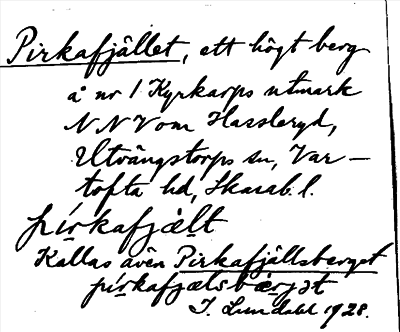 Pirkafjället, ett högt berg
å nr 1 Kyrkarps utmark
NNV om Hassleryd,
Utvängstorps sn, Var-
tofta hd, Skarab. l.
pìrkafjæ̀lt
Kallas även Pirkafjällsberget
pìrkafjælsbærjət
I. Lundahl 1928.